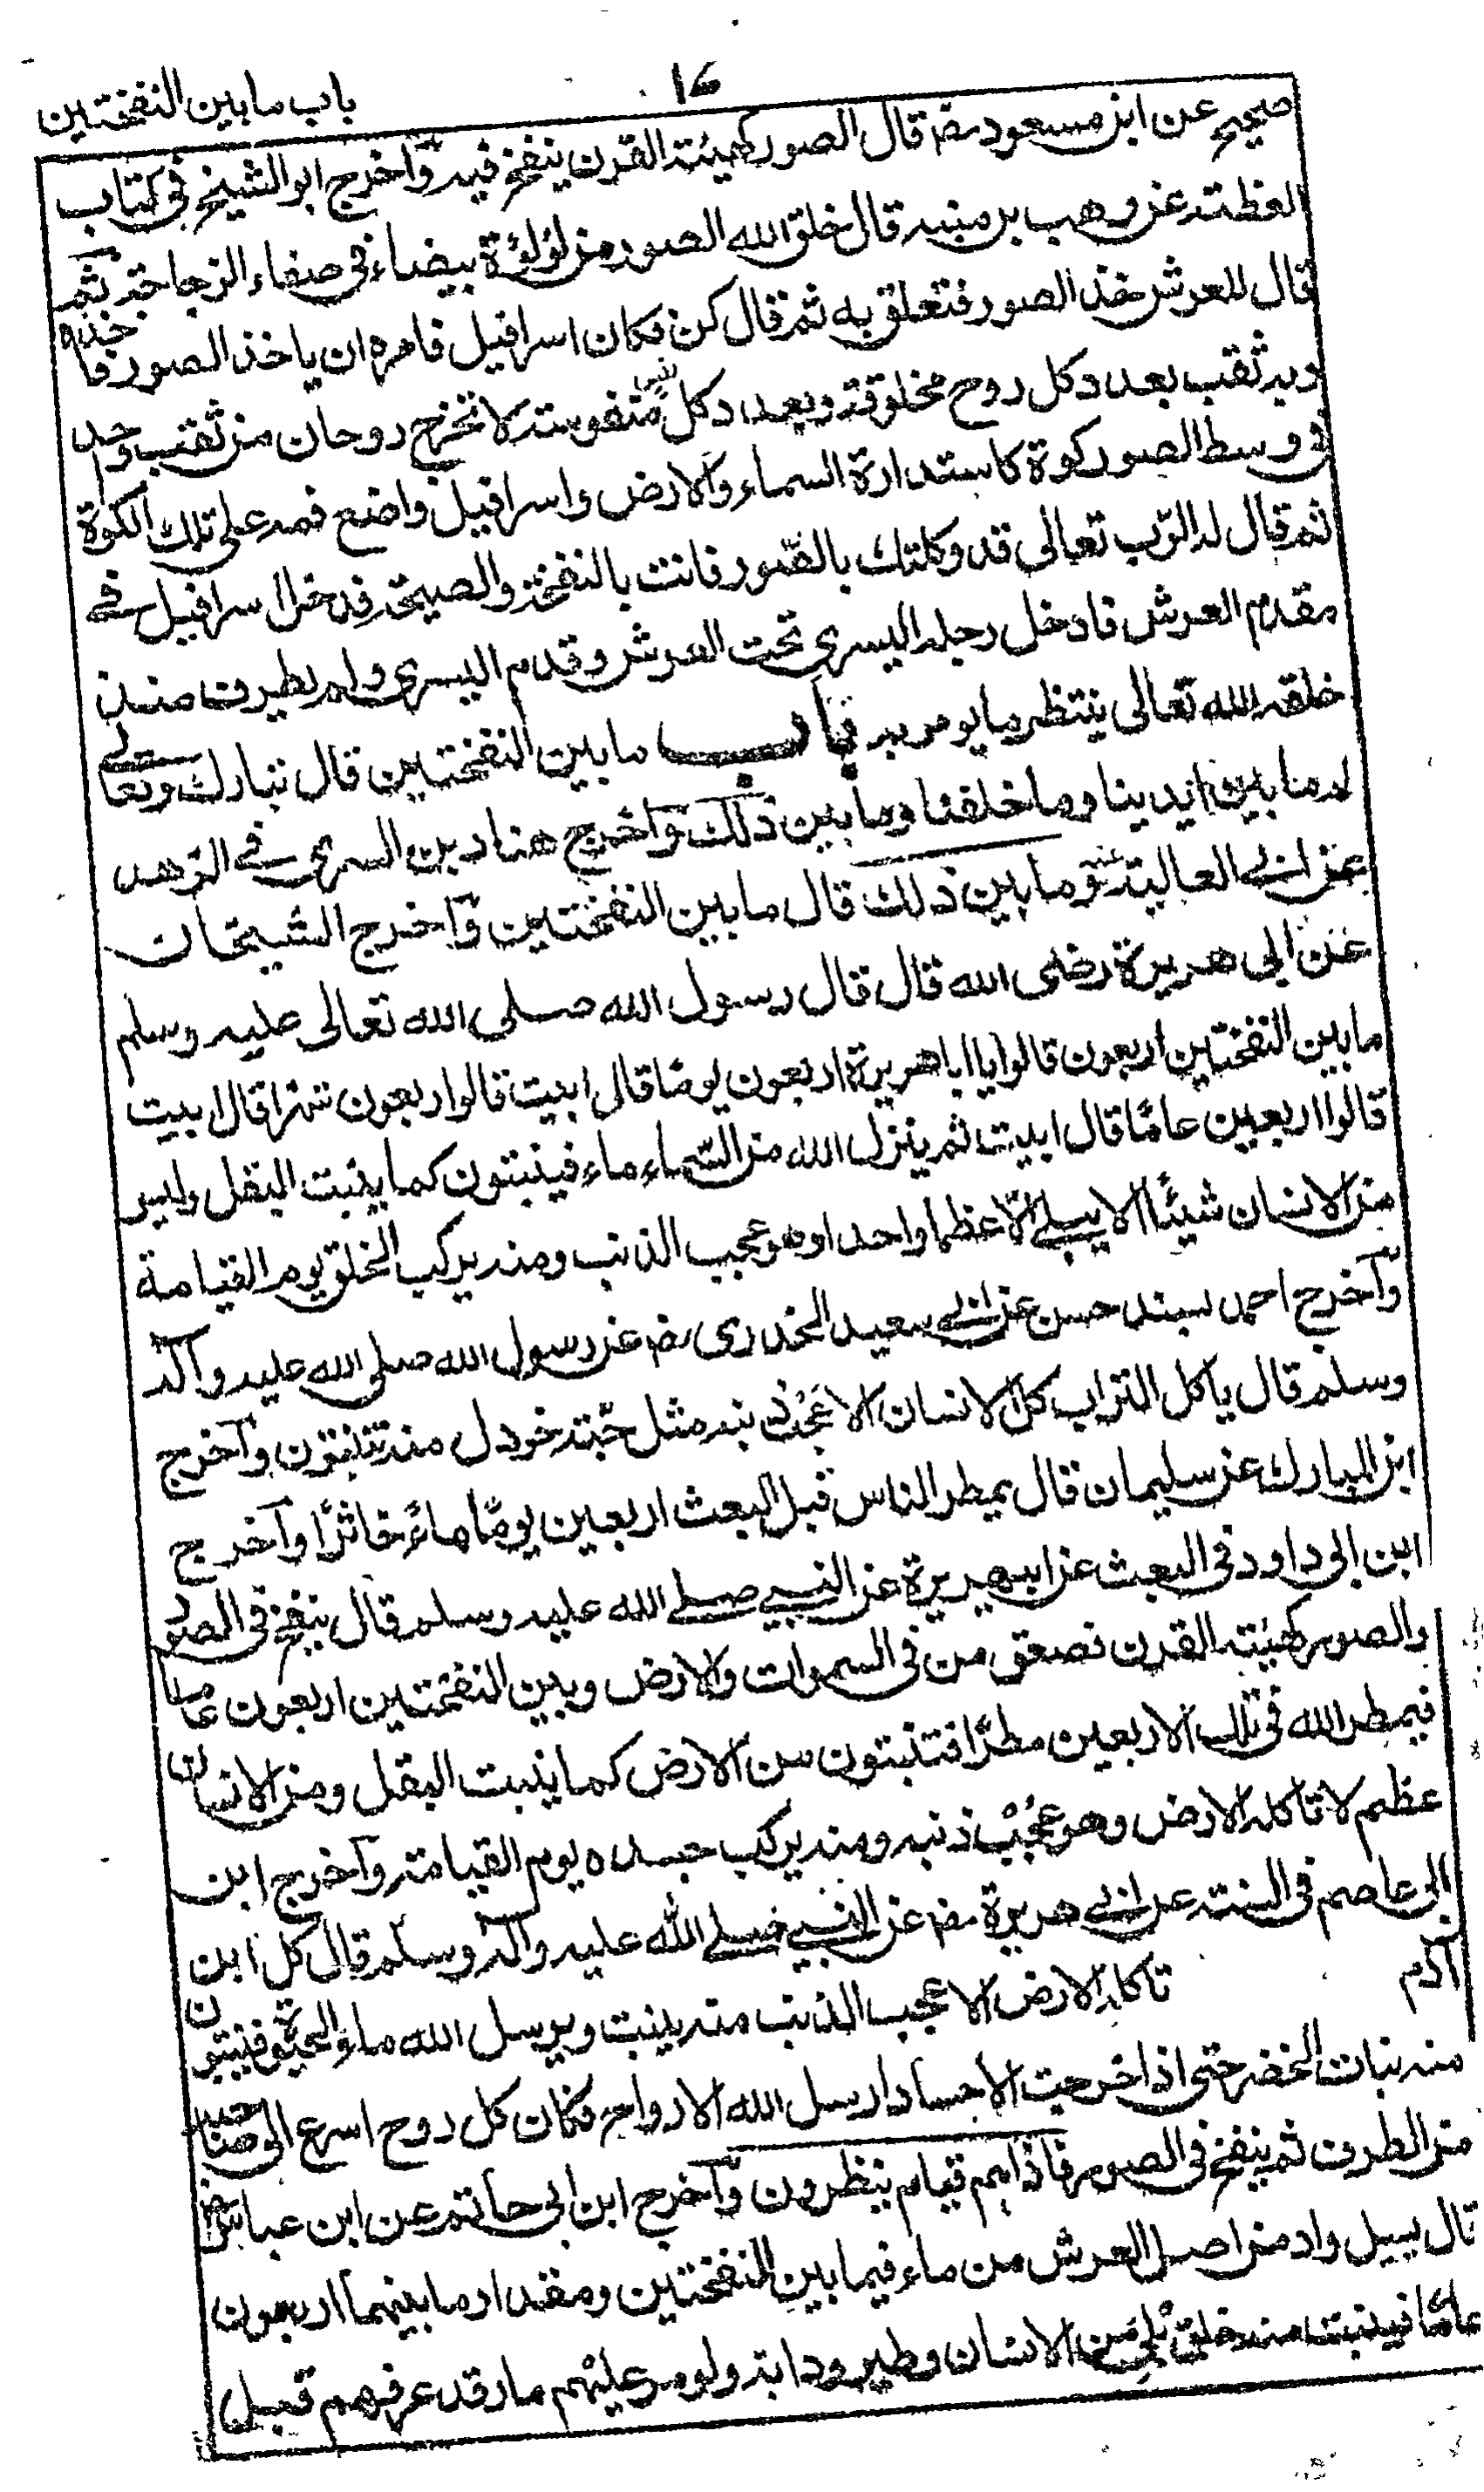 باب مابين النفختين
١٦
صحيح عن ابن مسعود رضـ قال الصور كهيئة القرن ينفخ فيه وآخرج ابو الشيخ فى كتاب
العظمته عن وهب بن منبه قال خلق الله الصور من لؤلؤة بيضاء فى صفاء الزجاجة ثم
قال للعرش خذ الصور فتعلق به ثم قال كن فكان اسرافيل فامره ان ياخذ الصور فاخذه
وبه ثقب بعدد كل روح مخلوقة وبعدد كل نفس منفوسته لا تخرج روحان من ثقب واحد
فى وسط الصور كوة كاستدارة السماء والارض واسرافيل واضع فمه على تلك الكوة
ثم قال له الرّب تعالى قد وكلتك بالصّور فانت بالنفخة والصيحة فدخل اسرافيل فے
مقدم العرش فادخل رجله اليسرى تحت العرش وقدم اليسرى ولم يطرف منذ
خلقه الله تعالى ينتظر ما يومر به باب مابين النفختين قال تبارك وتعالے
له مابين ايدينا وما خلفنا وما بين ذلك وآخرج هناد بن السرى فے الزهد
عن ابے العالية ومابين ذلك قال مابين النفختين وآخرج الشيخان
عن ابى هريرة رضى الله قال قال رسول الله صلى الله تعالى عليه وسلم
مابين النفختين اربعون قالوا يا ابا هريرة اربعون يومًا قال ابيت قالوا اربعون شهرًا قال ابيت
قالوا اربعين عامًا قال ابيت ثم ينزل الله من السّماء ماء فينبتون كما ينبت البقل وليس
من الانسان شيئًا الا يبلے الّا عظما واحدا وهو عجب الذنب ومنه يركب الخلق يوم القيامة
وآخرج احمد بسند حسن عن ابے سعيد الخدرى رضـ عن رسول الله صلى الله عليه وآله
وسلم قال ياكل التراب كل الانسان الا عَجْبَ ذنبه مثل حبّته خردل منه تنبتون وآخرج
ابن المبارك عن سليمان قال يمطر الناس قبل البعث اربعين يومًا ماءً خاثرًا وآخرج
ابن ابى داود فى البعث عن ابيهريرة عن النبے صلے الله عليه وسلم قال ينفخ فى الصور
والصور كهيئة القرن فصعق من فى السموات والارض وبين النفختين اربعون عاما
فيمطر الله فى تلك الاربعين مطرًا فتنبتون من الارض كما ينبت البقل ومن الانسان
عظم لا تاكله الارض وهو عُجْب ذنبه ومنه يركب جسده يوم القيامته وآخرج ابن
ابى عاصم فى السنته عن ابے هريرة رضـ عن النبے صلے الله عليه وآله وسلم قال كل ابن
آدم تاكله الارض الا عجب الذنب منه ينبت ويرسل الله ماء الحيٰوة فينبتون
منه نبات الخضر حتى اذا اخرجت الاجساد ارسل الله الارواح فكان كل روح اسرع الى صاحبه
من الطرف ثم ينفخ فى الصور فاذا هم قيام ينظرون وآخرج ابن ابى حاتم عن ابن عباس رضـ
قال يسيل واد من اصل العرش من ماء فيما بين النفختين ومقدار ما بينهما اربعون
عامًا فينبت منه خلق بلى من الانسان وطير ودابته ولو مر عليهم مار قد عرفهم قبل